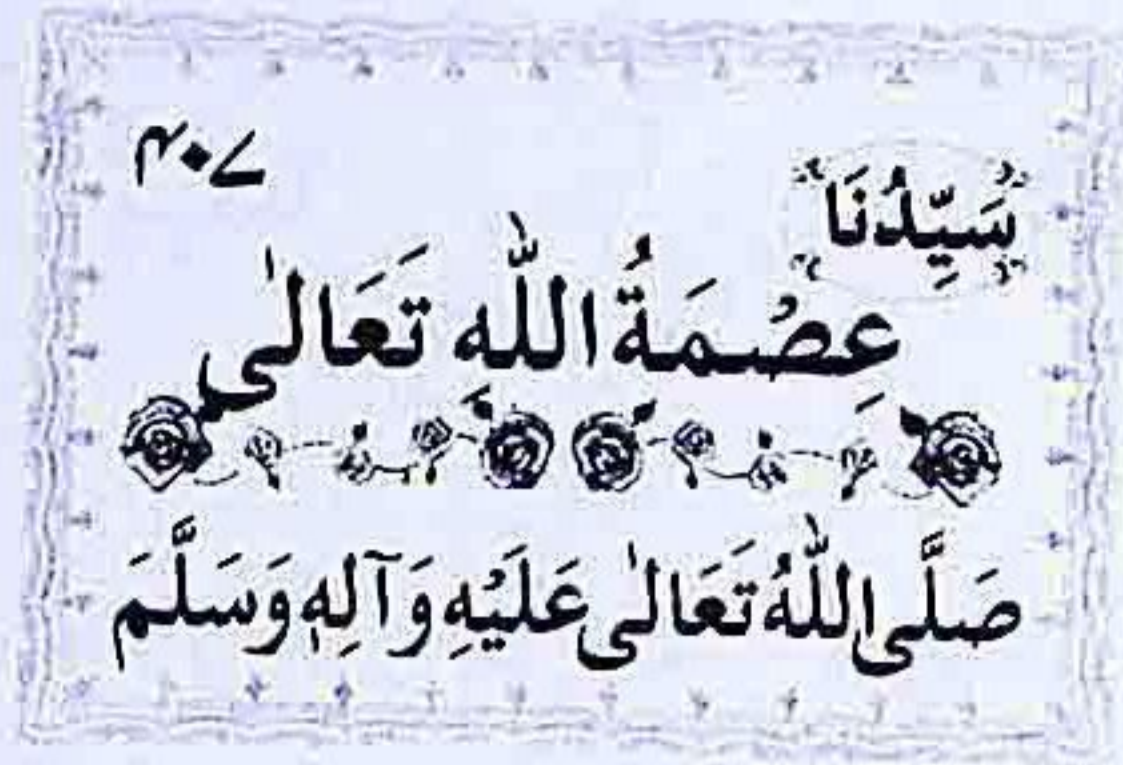 ۴۰۷
سَيِّدُنَا
عِصْمَةُ اللّٰهِ تَعَالٰى
صَلَّى اللّٰهُ تَعَالٰى عَلَيْهِ وَآلِهٖ وَسَلَّمَ